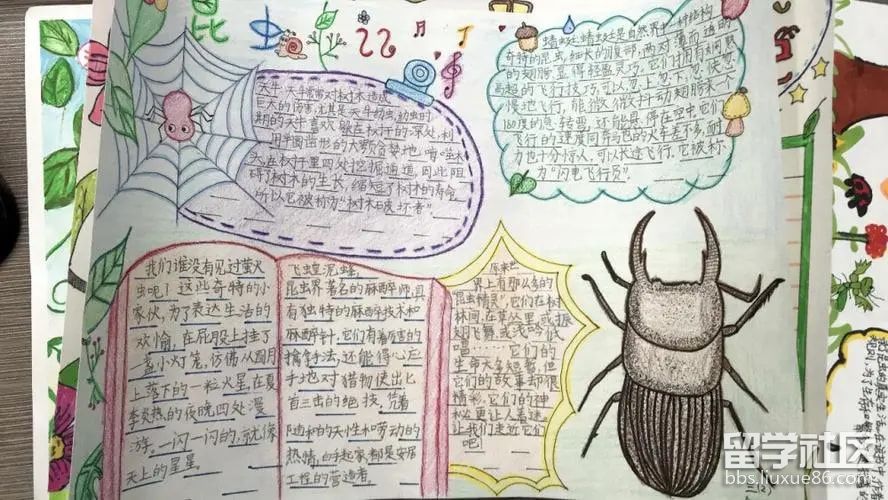 昆虫
天牛,天牛常常对树木造成
巨大的伤害,尤其是天牛幼虫,幼虫时
期的天牛喜欢躲在树干的深处,利
用半圆齿形的大颚贪婪地啃蛀木
头,在树干里四处挖掘通道,因此阻
碍了树木的生长,缩短了树木的寿命
所以它被称为“树木破坏者”
蜻蜓,蜻蜓是自然界中一种结构
奇特的昆虫,细长的腹部,两对薄而透明
的翅膀,显得轻盈灵巧,它们拥有如同战斗
高超的飞行技巧,可以忽上忽下,忽快忽
慢地飞行,能微微抖动翅膀来一个
180度的急转弯,还能悬停在空中,它们
飞行的速度同奔跑的火车差不多,耐
力也十分惊人,可以长途飞行,它被称
为“闪电飞行员”
我们谁没有见过萤火
虫呢!这些奇特的小
家伙,为了表达生活的
欢愉,在屁股上挂了
一盏小灯笼,仿佛从圆月
上落下的一粒火星,在夏
季炎热的夜晚四处漫
游。一闪一闪的,就像
天上的星星。
飞蝗泥蜂,
昆虫界著名的麻醉师,具
有独特的麻醉技术和
麻醉针,它们有着厉害的
擒拿手法,还能得心应
手地对猎物使出匕
首三击的绝技,凭着
随和的天性和劳动的
热情,白手起家,都是安居
工程的营造者。
原来世
界上有那么多的
“昆虫精灵”,它们在树
林间,在草丛里,或振
翅飞舞,或浅吟低
唱……它们的
生命大多短暂,但
它们的故事却很
精彩,它们的神
秘更让人着迷,
让我们走近它们
吧
留学社区
bbs.liuxue86.com